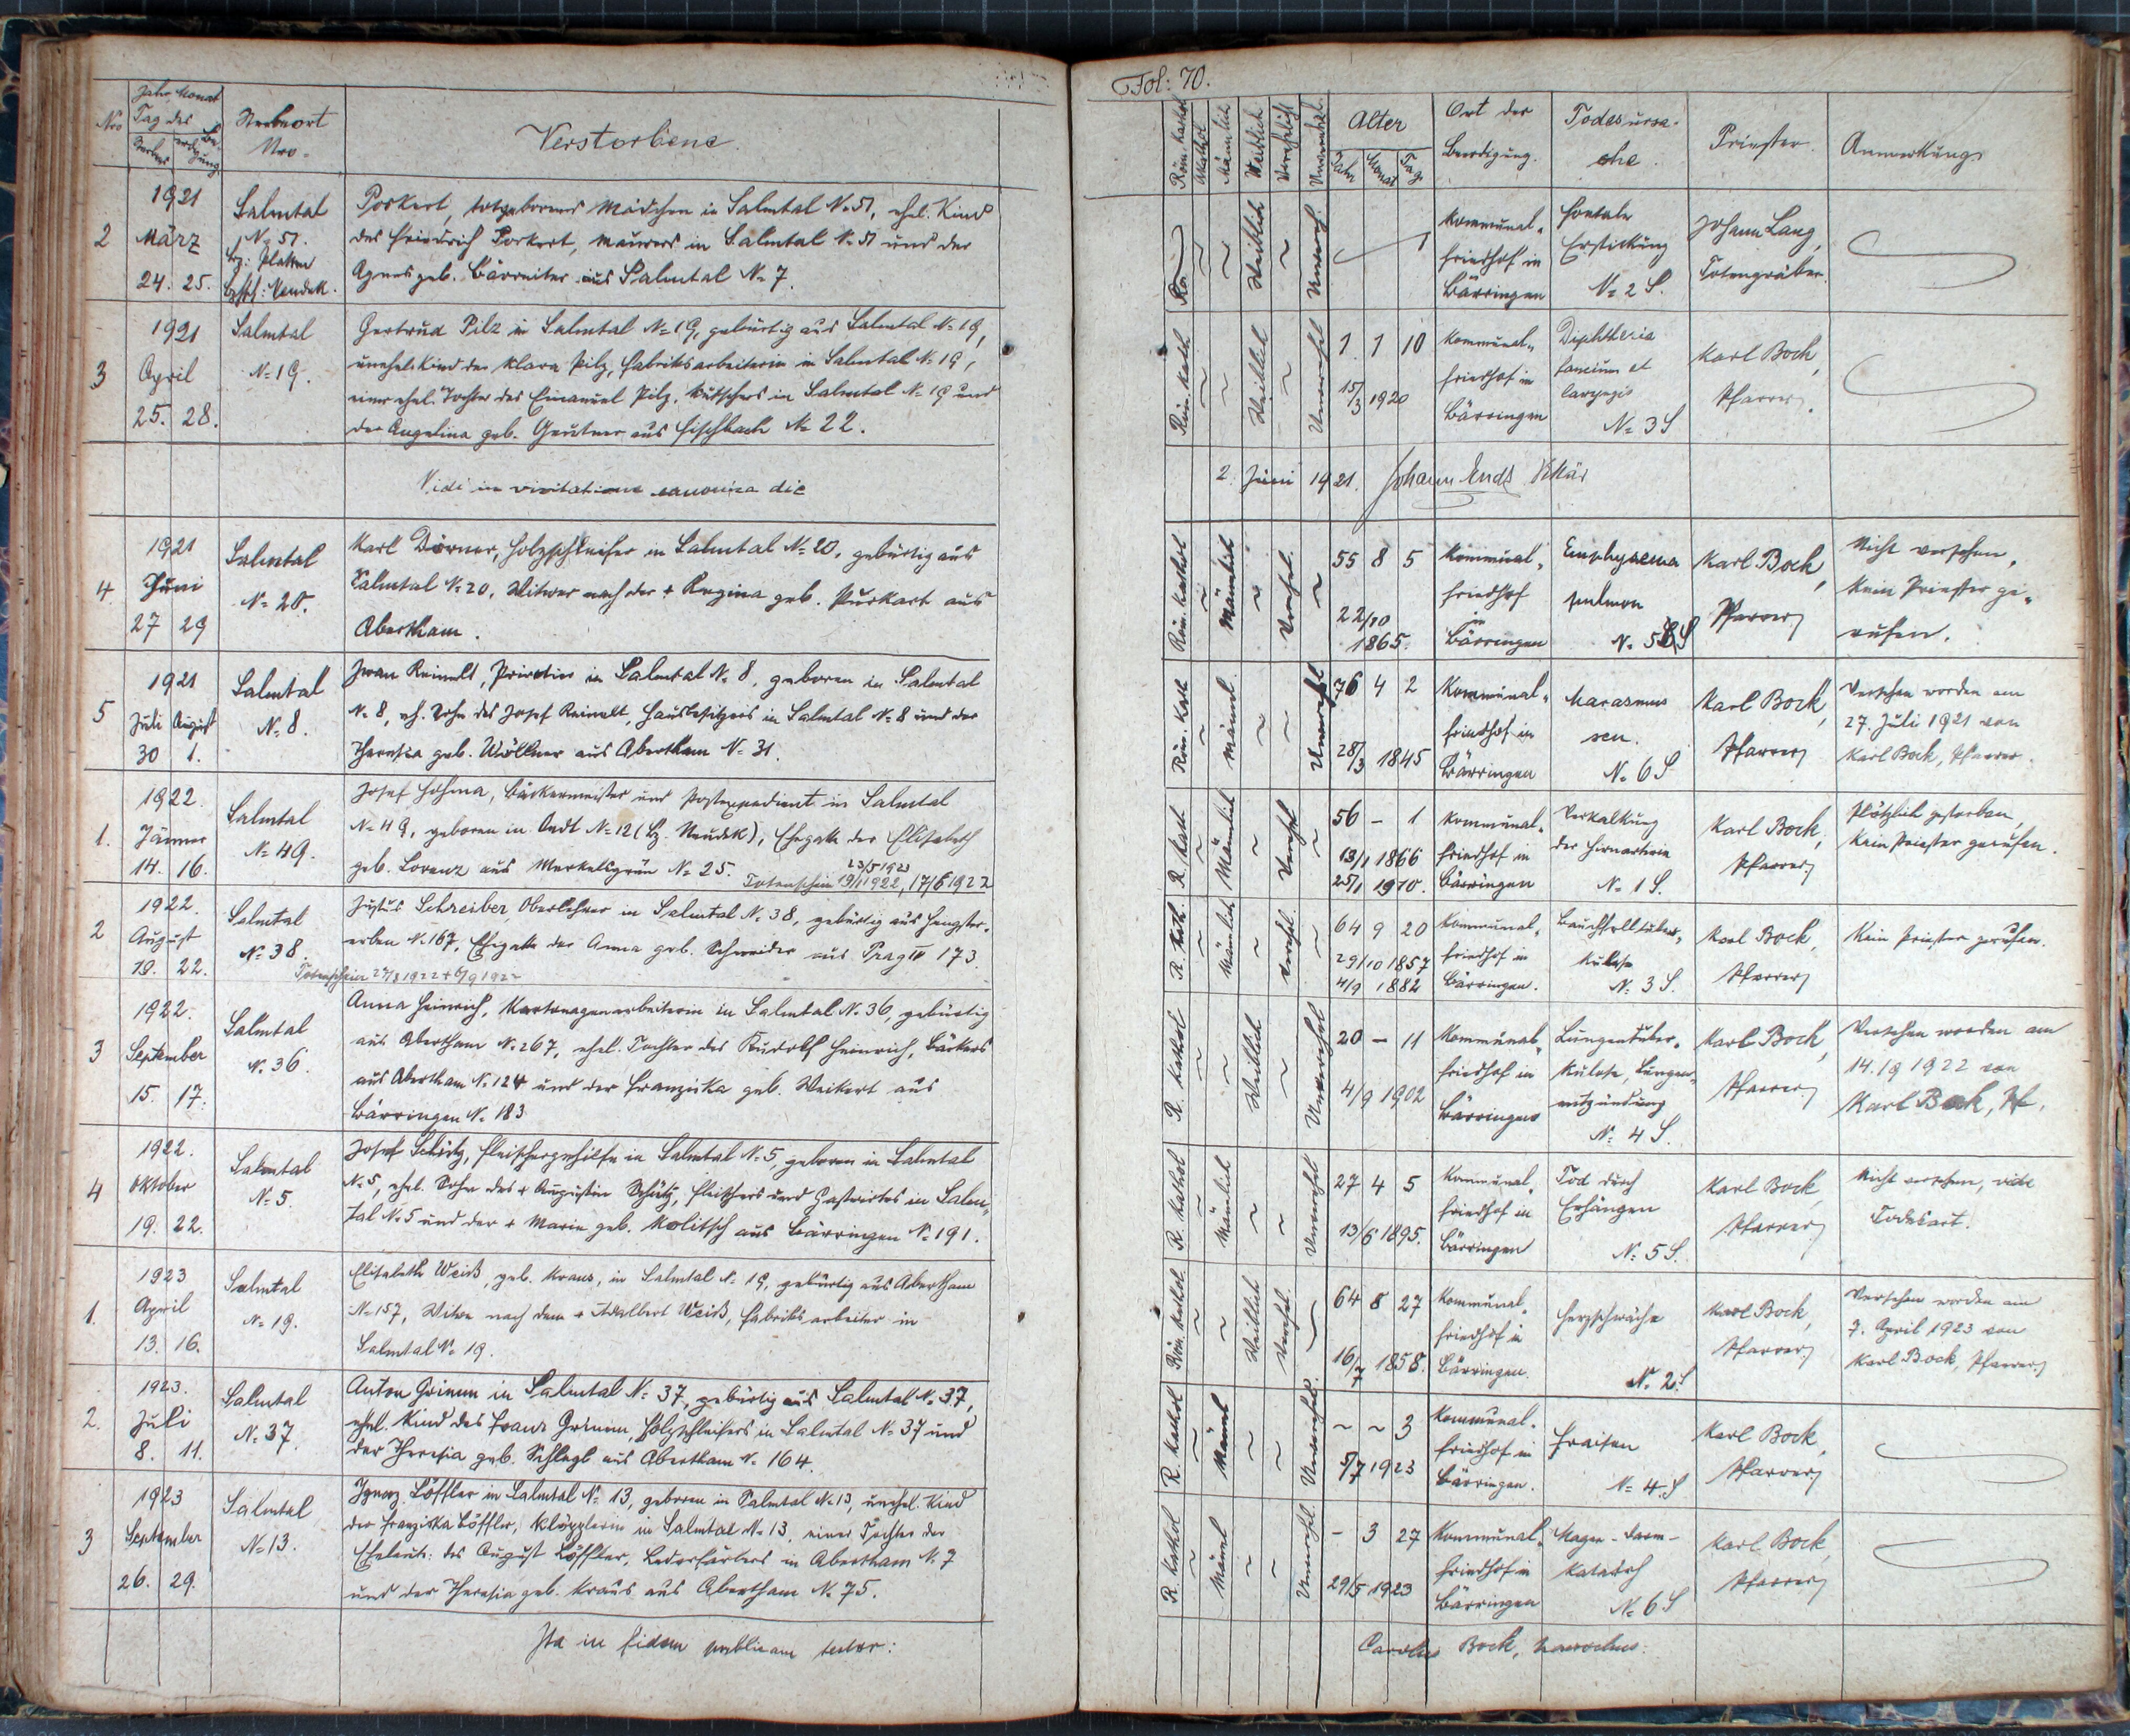 Fol: 70.
Nro
Jahr, Monat
Tag des
Sterbens
Beerdigung
Sterbeort
Nro.
Verstorbene.
Röm. kathol.
Akathol.
Männlich
Weiblich
Verehelicht
Unverehel.
Alter
Jahr
Monat
Tag
Ort der
Beerdigung.
Todesursa-
che.
Priester.
Anmerkung.
2
1921
März
24. 25.
Salmtal
N= 51.
Bz: Platten
Bzkh: Neudek.
Porkert, totgeborenes Mädchen in Salmtal N= 51, ehel. Kind
des Friedrich Porkert, Maurers in Salmtal N= 51 und der
Agnes geb. Bärreiter aus Salmtal N= 7.
Weiblich
Unvereh.
Kommunal-
friedhof in
Bärringen
Foetale
Erstickung
N= 2 S.
Johann Lang,
Totengräber.
3
1921
April
25. 28.
Salmtal
N= 19.
Gertrud Pilz in Salmtal N= 19, gebürtig aus Salmtal N= 19,
unehel. Kind der Klara Pilz, Fabriksarbeiterin in Salmtal N= 19,
einer ehel. Tochter des Emanuel Pilz, Kutschers in Salmtal N= 19 und
der Angelina geb. Geutner aus Fischbach N= 22.
Röm. kath.
Weiblich
Unverehel
1 1 10
15/3 1920
Kommunal-
friedhof in
Bärringen
Diphtheria
faucium et
laryngis
N= 3 S
Karl Bock,
Pfarrer.
Vidi in visitatione canonica die
2. Juni 1921. Johann Endt Vikär
4
1921
Juni
27 29
Salmtal
N= 20.
Karl Dörner, Holzschleifer in Salmtal N= 20, gebürtig aus
Salmtal N= 20, Witwer nach der + Regina geb. Purkart aus
Abertham.
Röm. kathol
Männlich
Verehel.
55 8 5
22/10
1865.
Kommunal-
friedhof
in
Bärringen
Emphysema
pulmon
N. 5 S
Karl Bock,
Pfarrer
Nicht versehen,
kein Priester ge-
rufen.
5
1921
Juli August
30 1.
Salmtal
N= 8.
Franz Reinelt, Privatier in Salmtal N= 8, geboren in Salmtal
N= 8, eh. Sohn des Josef Reinelt, Hausbesitzers in Salmtal N= 8 und der
Theresia geb. Wöllner aus Abertham N= 31.
Röm. Kath
Männl.
Unverehel
76 4 2
28/3 1845
Kommunal-
friedhof in
Bärringen
Marasmus
sen.
N= 6 S
Karl Bock,
Pfarrer
Versehen worden am
27. Juli 1921 von
Karl Bock, Pfarrer.
1.
1922.
Jänner
14. 16.
Salmtal
N= 49.
Josef Hahma, Bäckermeister und Postexpedient in Salmtal
N= 49, geboren in Endt N= 12 (Bz. Neudek), Ehegatte der Elisabeth
geb. Lorenz aus Merkelsgrün N= 25.
23/5 1923
Totenschein 19/1 1922, 17/6 1922
R. Kath.
Männlich
Verehel
56 - 1
13/1 1866
25/1 1910.
Kommunal-
friedhof in
Bärringen
Verkalkung
der Hirnarterien
N= 1 S.
Karl Bock,
Pfarrer
Plötzlich gestorben,
kein Priester gerufen.
2
1922.
August
19. 22.
Salmtal
N= 38.
Justus Schreiber, Oberlehrer in Salmtal N= 38, gebürtig aus Hengster-
erben N. 167, Ehegatte der Anna geb. Schneider aus Prag IV 173
Totenschein 27/8 1922 + 6/9 1922
R. Kath.
Männlich
Verehel.
64 9 20
29/10 1857
4/9 1882
Kommunal-
friedhof in
Bärringen.
Bauchfelltuber-
kulose
N= 3 S.
Karl Bock,
Pfarrer
Kein Priester gerufen.
3
1922.
September
15. 17.
Salmtal
N. 36.
Anna Heinrich, Kartonagenarbeiterin in Salmtal N. 36, gebürtig
aus Abertham N. 267, ehel. Tochter des Rudolf Heinrich, Bäckers
aus Abertham N. 124 und der Franziska geb. Weikert aus
Bärringen N. 183
R. Kathol
Weiblich
Unverehel
20 - 11
4/9 1902
Kommunal-
friedhof in
Bärringen
Lungentuber-
kulose, Lungen-
entzündung
N= 4 S.
Karl Bock,
Pfarrer
Versehen worden am
14./9 1922 von
Karl Bock, Pf.
4
1922.
Oktober
19. 22.
Salmtal
N= 5.
Josef Schütz, Fleischergehilfe in Salmtal N= 5, geboren in Salmtal
N= 5, ehel. Sohn des + Augustin Schütz, Fleischers und Gastwirtes in Salm-
tal N. 5 und der + Marie geb. Kolitsch aus Bärringen N= 191.
R. Kathol
Männlich
Unverehel
27 4 5
13/6 1895.
Kommunal-
friedhof in
Bärringen
Tod durch
Erhängen
N= 5 S.
Karl Bock,
Pfarrer
Nicht versehen, vide
Todesart.
1.
1923
April
13. 16.
Salmtal
N= 19.
Elisabeth Weiß, geb. Kraus, in Salmtal N= 19, gebürtig aus Abertham
N= 157, Witwe nach dem + Adalbert Weiß, Fabriksarbeiter in
Salmtal N= 19.
Röm. Kathol.
Weiblich
Verehel.
64 8 27
16/7 1858.
Kommunal-
friedhof in
Bärringen.
Herzschwäche
N= 2 S
Karl Bock,
Pfarrer
Versehen worden am
7. April 1923 von
Karl Bock, Pfarrer
2.
1923.
Juli
8. 11.
Salmtal
N= 37.
Anton Grimm in Salmtal N= 37, gebürtig aus Salmtal N. 37,
ehel. Kind des Franz Grimm, Holzschleifers in Salmtal N= 37 und
der Theresia geb. Schlagl aus Abertham N. 164.
R. Kathol
Männl
Unverehel.
~ ~ 3
5/7 1923
Kommunal-
friedhof in
Bärringen.
Fraisen
N= 4. S
Karl Bock,
Pfarrer
3
1923
September
26. 29.
Salmtal
N= 13.
Ignaz Löffler in Salmtal N= 13, geboren in Salmtal N= 13, unehel. Kind
der Franziska Löffler, Klöpplerin in Salmtal N= 13, einer Tochter der
Eheleute: des August Löffler, Lederfärbers in Abertham N. 7
und der Theresia geb. Kraus aus Abertham N. 75.
R. Kathol
Männl
Unverehl.
- 3 27
29/5 1923
Kommunal-
friedhof in
Bärringen
Magen-Darm-
katarrh
N= 6 S
Karl Bock,
Pfarrer
Ita in fidem publicam testor:
Carolus Bock, parochus.